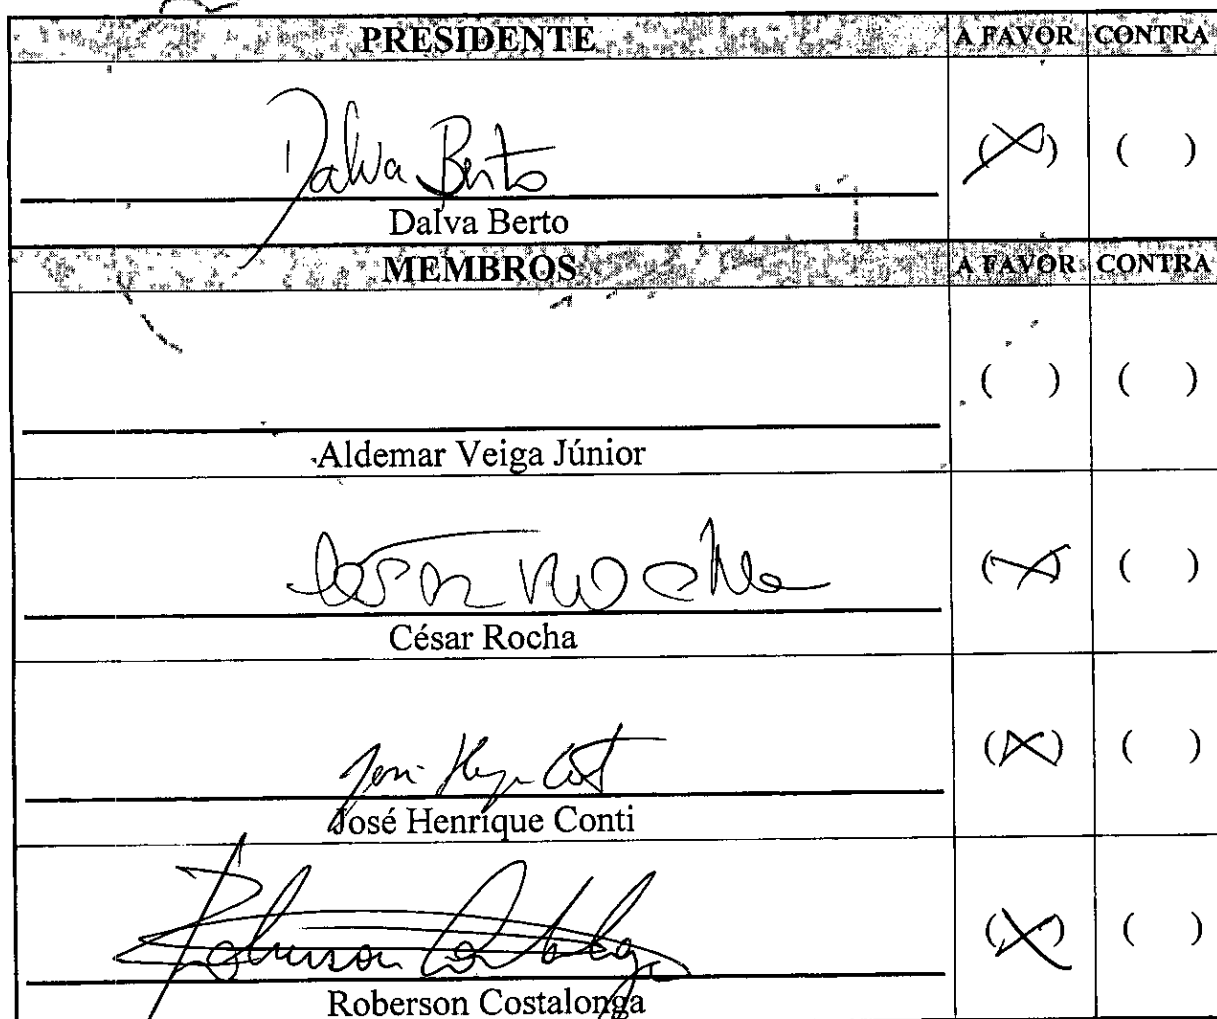 PRESIDENTE A FAVOR CONTRA
Dalva Berto (X) ( )
Dalva Berto
MEMBROS A FAVOR CONTRA
( ) ( )
Aldemar Veiga Júnior
César Rocha (X) ( )
César Rocha
José Henrique Conti (X) ( )
José Henrique Conti
Roberson Costalonga (X) ( )
Roberson Costalonga